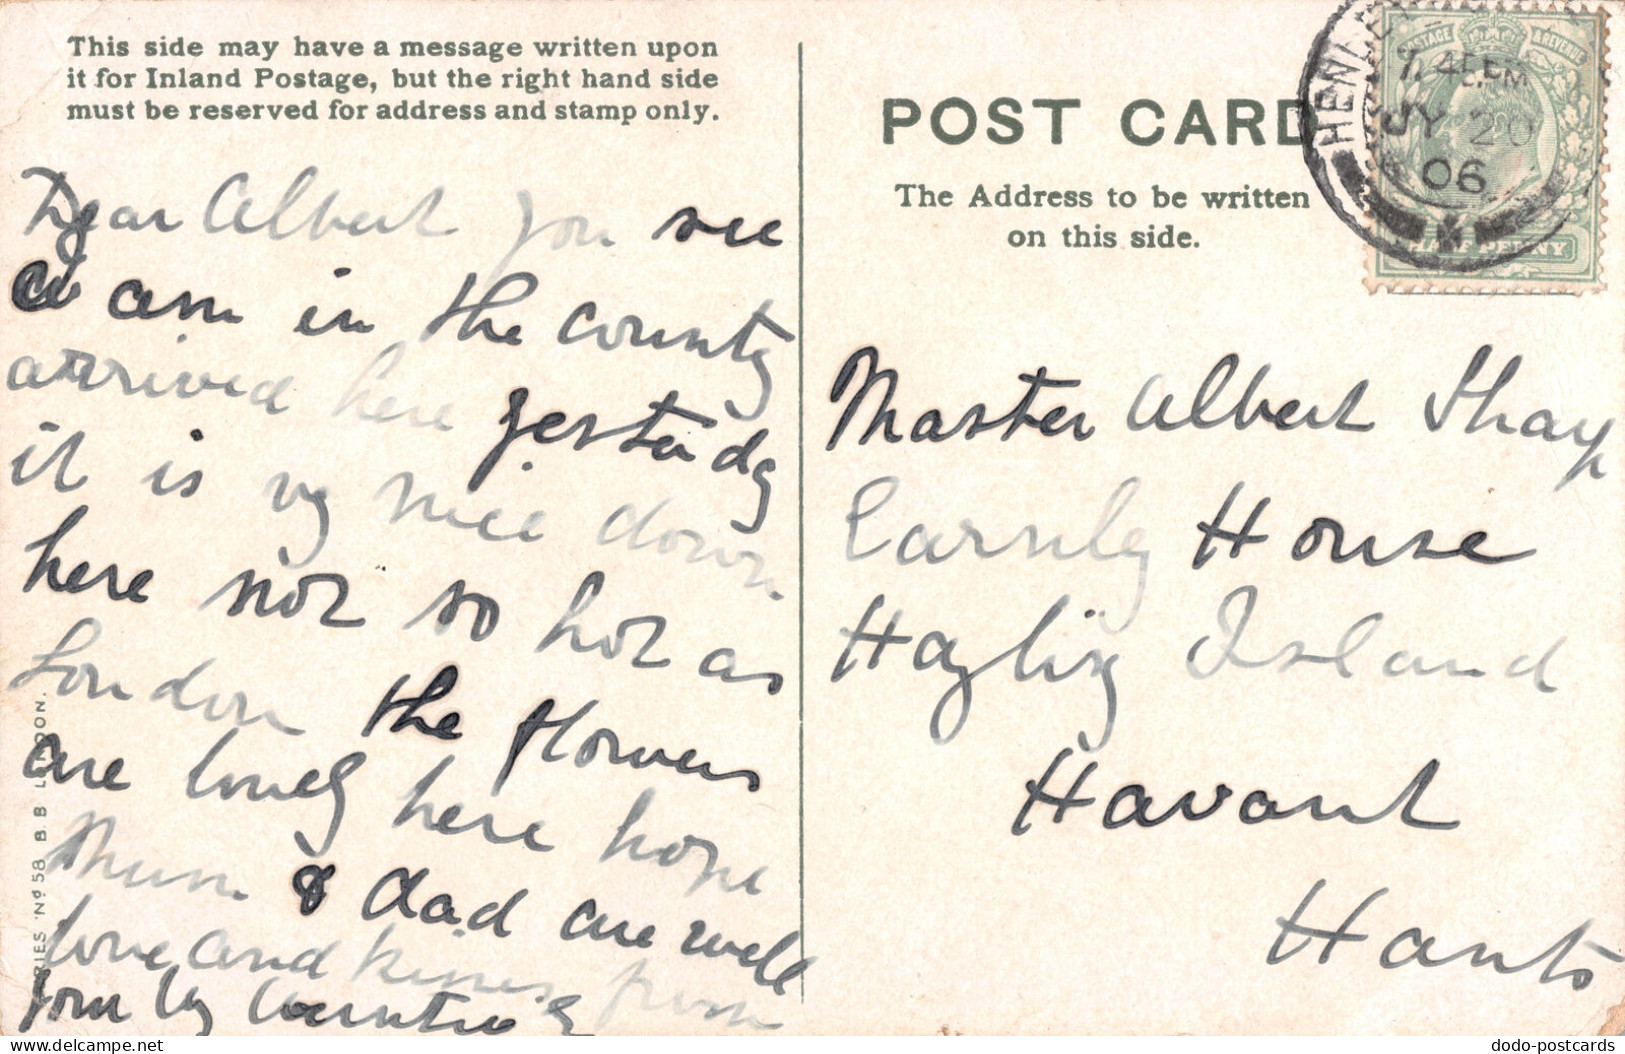 This side may have a message written upon
it for Inland Postage, but the right hand side
must be reserved for address and stamp only.
Dear Albert you see
am in the county
arrived here yesterdy
it is vy nice down
here not so hot as
London the flowers
are lovely here hope
Mum & dad are well
love and kisses from
SERIES Nº 58 B. B LONDON.
POST CARD
The Address to be written
on this side.
POSTAGE & REVENUE
HALF PENNY
JY 20
06
Master Albert Shay
House
Island
Havant
Hants
dodo-postcards